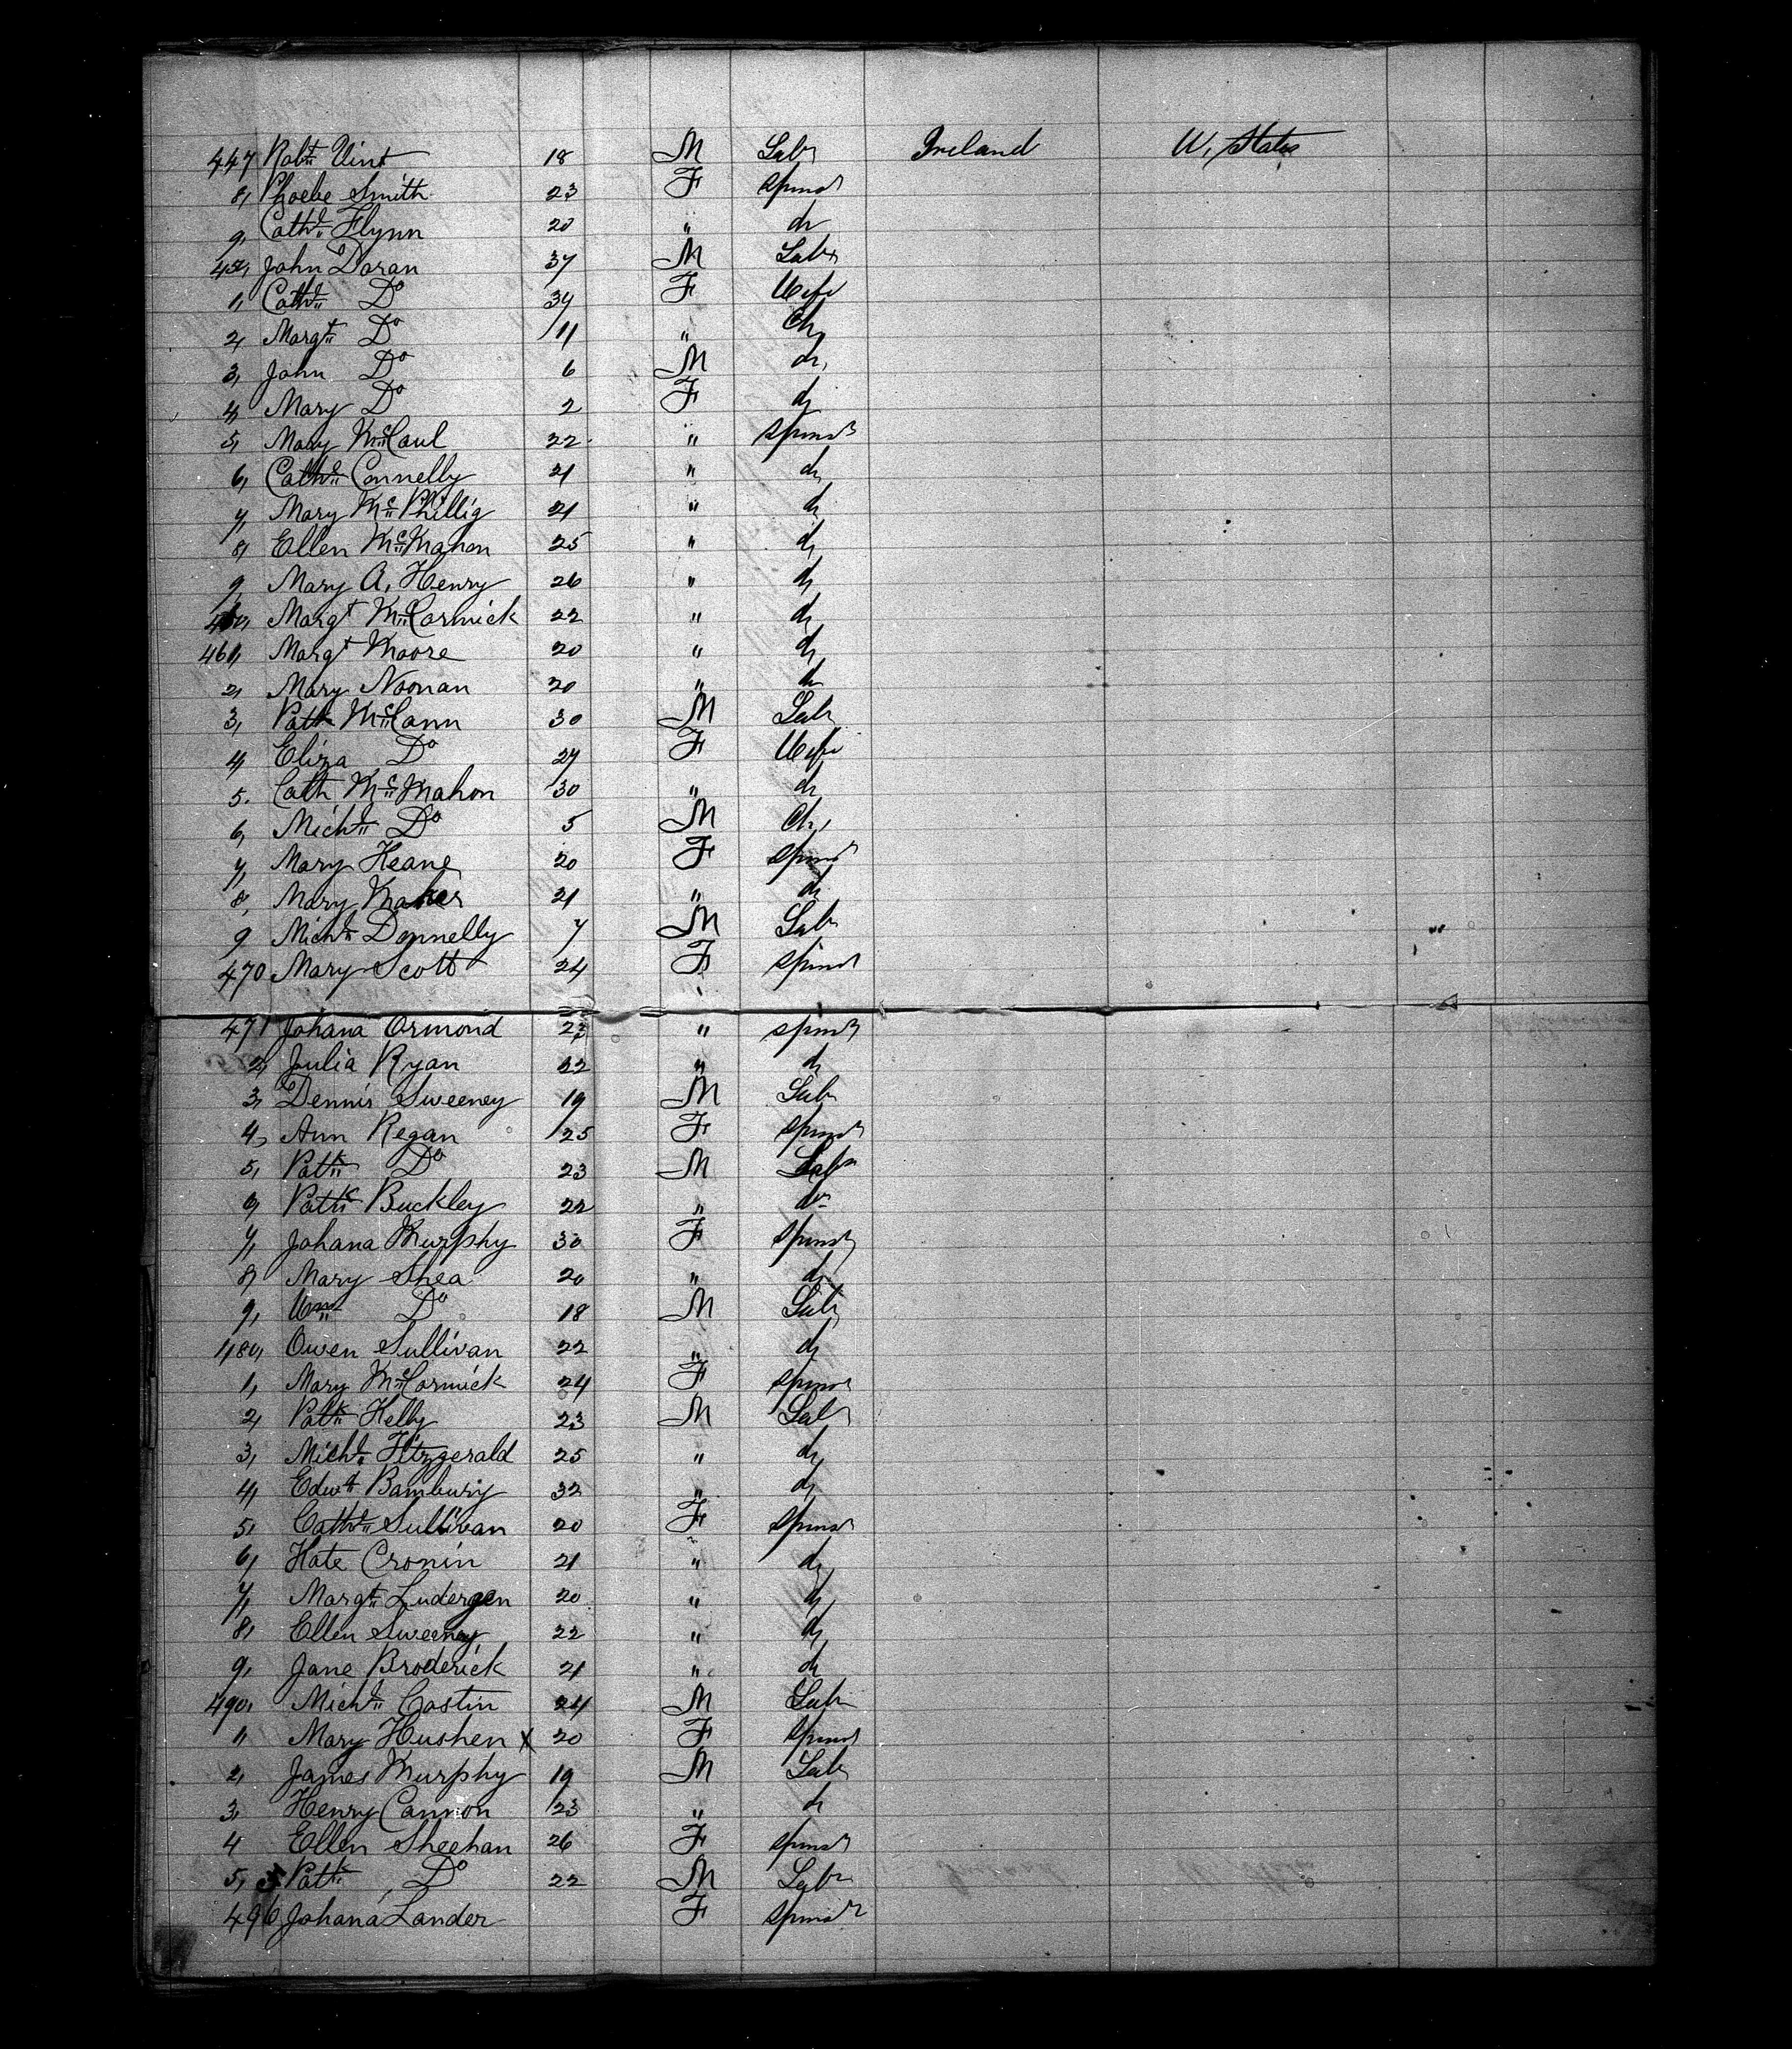 447, Robt Vint 18 M Labr Ireland U, States
8, Phoebe Smith 23 F Spinsr
9, Cathe Flynn 20 " do
450, John Doran 37 M Labr
1, Cathe Do 34 F Wife
2, Margt Do 11 " Ch,
3, John Do 6 M do,
4, Mary Do 2 F do
5, Mary McCaul 22 " Spinsr
6, Cathe Connelly 21 " do
7, Mary McPhillig 21 " do
8, Ellen McMahon 25 " do
9, Mary A, Henry 26 " do
460, Margt McCormick 22 " do
461, Margt Moore 20 " do
2, Mary Noonan 20 " do
3, Patk McCann 30 M Labr
4, Eliza Do 27 F Wife
5. Cath McMahon 30 " do
6, Michl Do 5 M Ch,
7, Mary Keane 20 F Spinsr
8, Mary Maher 21 " do
9 Michl Donnelly 7 M Labr
470 Mary Scott 24 F Spinsr
471 Johana Ormond 23 " Spinsr
2, Julia Ryan 22 " do
3, Dennis Sweeney 19 M Labr
4, Ann Regan 25 F Spinsr
5, Patk Do 23 M Labr
6, Patk Buckley 22 " do
7, Johana Murphy 30 F Spinsr
8, Mary Shea 20 " do
9, Wm Do 18 M Labr
480, Owen Sullivan 22 " do
1, Mary McCormick 24 F Spinsr
2, Patk Kelly 23 M Labr
3, Michl Fitzgerald 25 " do
4, Edwd Bambury 32 " do
5, Cathe Sullivan 20 F Spinsr
6, Kate Cronin 21 " do
7, Margt Ludergen 20 " do
8, Ellen Sweeney 22 " do
9, Jane Broderick 21 " do
490, Michl Costin 24 M Labr
1, Mary Hushen X 20 F Spinsr
2, James Murphy 19 M Labr
3, Henry Cannon 23 " do
4 Ellen Sheehan 26 F Spinsr
5, Patk Do 22 M Labr
496 Johana Lander F Spinsr